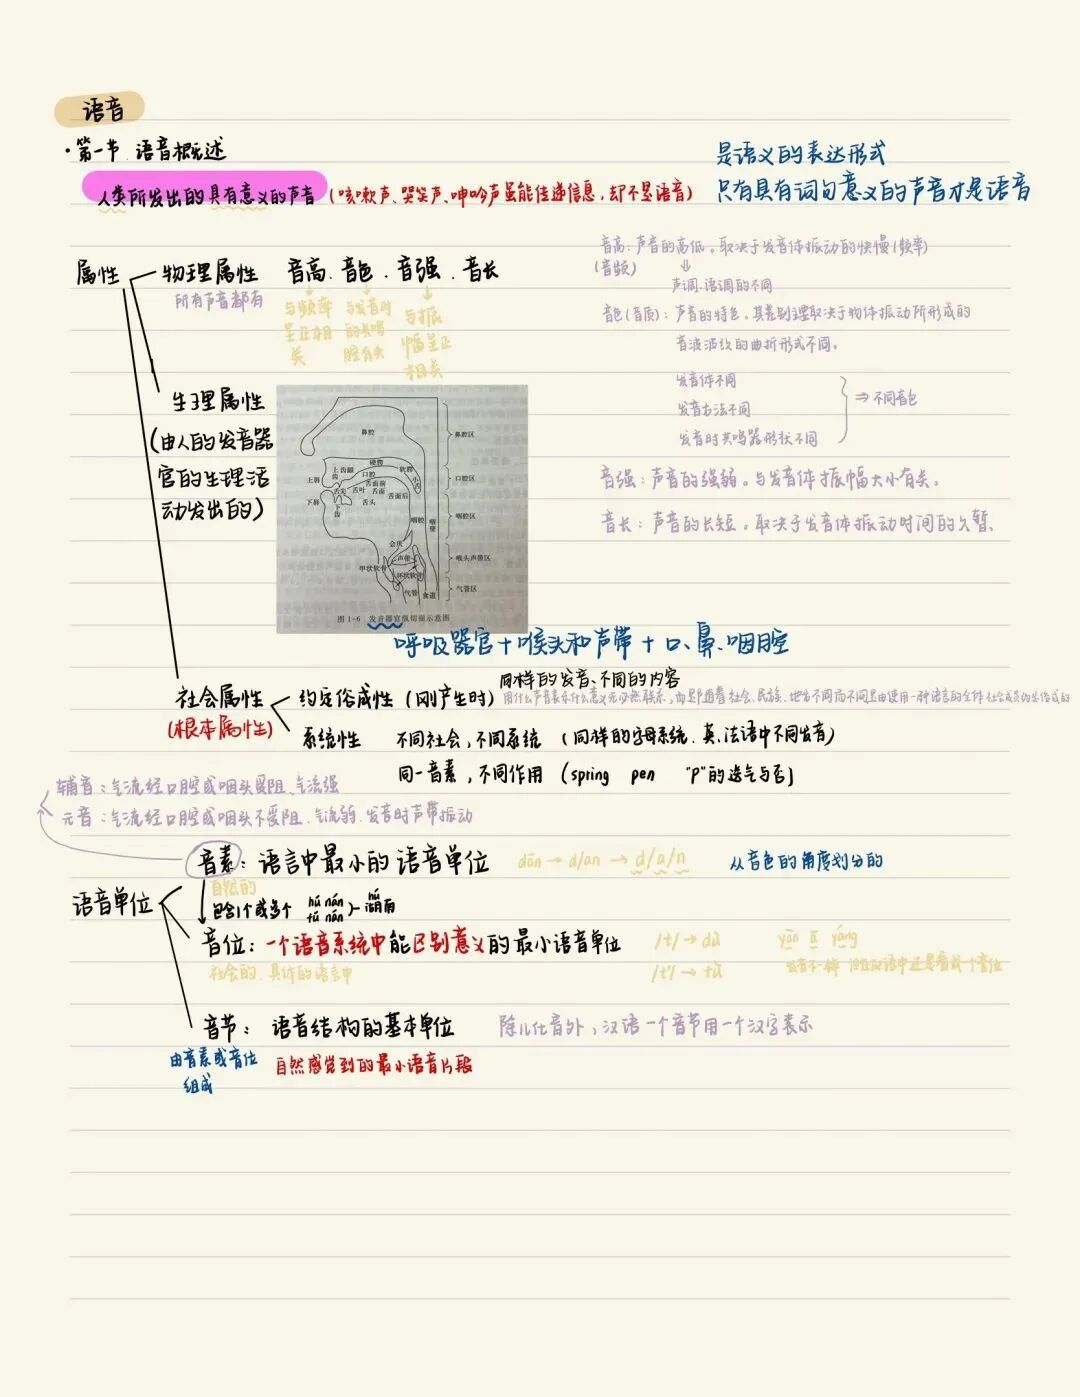 语音
·第一节 语音概述
人类所发出的具有意义的声音(咳嗽声、哭笑声、呻吟声虽能传递信息,却不是语音)
是语义的表达形式
只有具有词句意义的声音才是语音
属性
物理属性 音高、音色、音强、音长
所有声音都有
与频率呈正相关
与发音时的共鸣腔有关
与振幅呈正相关
音高:声音的高低。取决于发音体振动的快慢(频率)
(音频) ⇓
声调、语调的不同
音色(音质):声音的特色。其差别主要取决于物体振动所形成的
音波波纹的曲折形式不同。
发音体不同
发音方法不同
发音时共鸣器形状不同
⇒不同音色
音强:声音的强弱。与发音体振幅大小有关。
音长:声音的长短。取决于发音体振动时间的久暂。
生理属性
(由人的发音器
官的生理活
动发出的)
鼻腔
鼻腔区
上齿龈
硬腭
软腭
小舌
上唇
上齿
口腔
口腔区
舌尖
舌叶
舌面前
舌面
舌面后
下唇
下齿
舌头
咽腔
咽壁
咽腔区
会厌
声带
喉头声带区
甲状软骨
环状软骨
气管
食道
气管区
图1-6 发音器官纵切面示意图
呼吸器官+喉头和声带+口、鼻、咽腔
社会属性
(根本属性)
同样的发音、不同的内容
约定俗成性(刚产生时)
用什么声音表示什么意义无必然联系,而是随着社会、民族、地方不同而不同
系统性 不同社会,不同系统 (同样的字母系统、英、法语中不同发音)
同一音素,不同作用 (spring pen "p"的送气与否)
辅音:气流经口腔或咽头受阻、气流强
元音:气流经口腔或咽头不受阻、气流弱、发音时声带振动
语音单位
音素:语言中最小的语音单位 dān→d/an→d/a/n 从音色的角度划分的
自然的
包含1个或多个 hú nán
lú nán
hú
湖南
音位:一个语音系统中能区别意义的最小语音单位
社会的、具体的语言中
/t/→dù
/t'/→tù
yān 区 yáng
发音不一样 但在汉语中还是看成一个音位
音节:语音结构的基本单位 除儿化音外,汉语一个音节用一个汉字表示
由音素或音位
组成
自然感觉到的最小语音片段